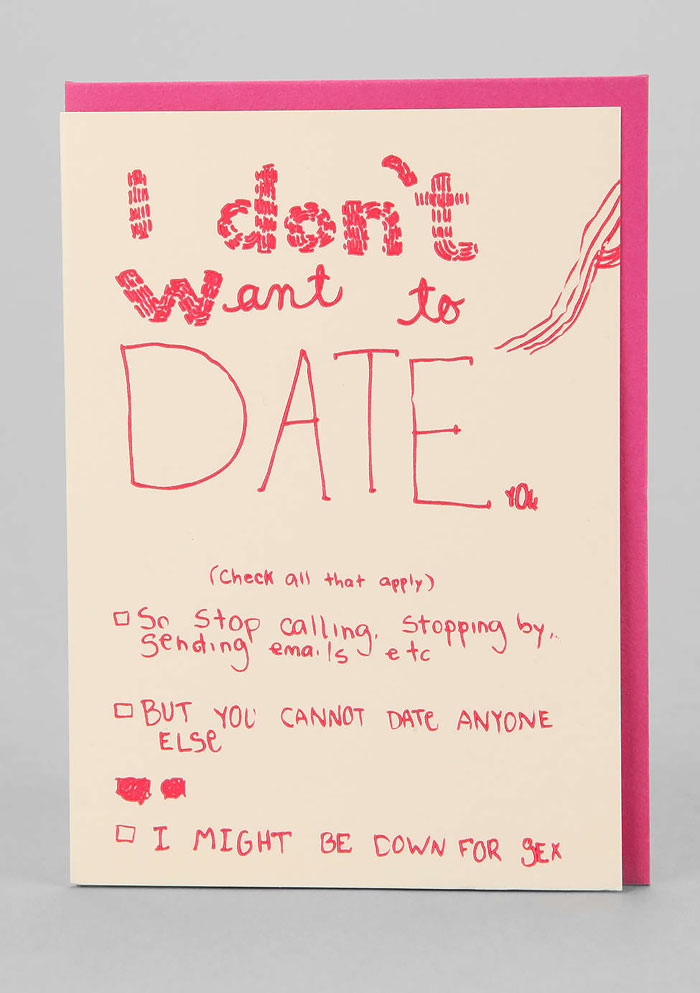 I don't
want to
DATE. YOU
(Check all that apply)
So stop calling, stopping by,
sending emails etc
BUT YOU CANNOT DATE ANYONE
ELSe
I MIGHT BE DOWN FOR SEX